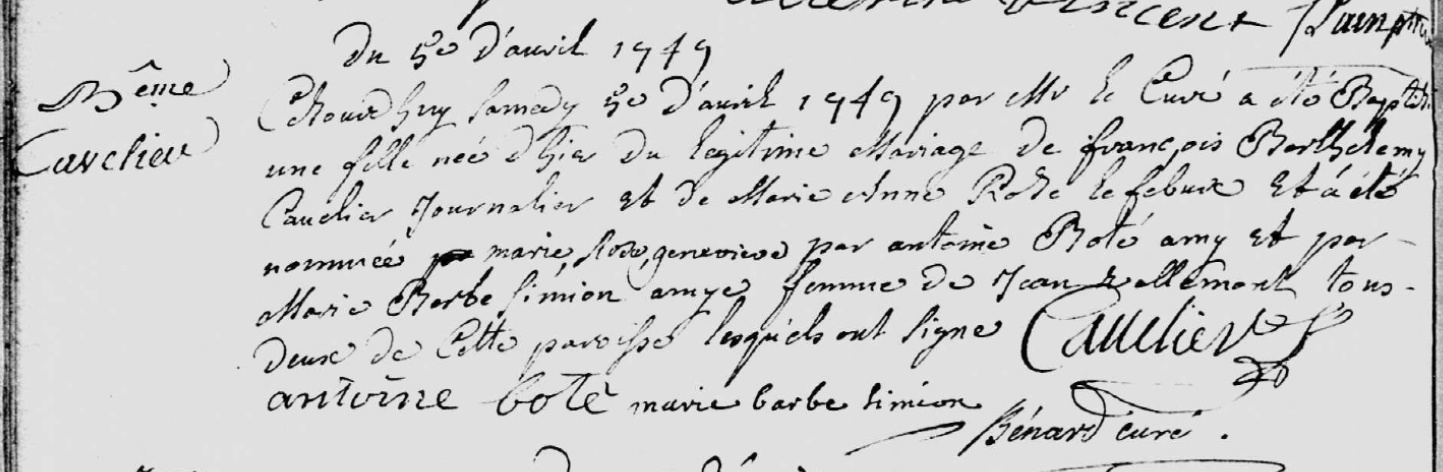 Vincent
Du 5e d'auril 1749
B.ême
Cauelier
Cejourd'huy samedy 5e d'auril 1749 par Mr le Curé a été Baptisée
une fille née d'hier du légitime Mariage de françois Barthélemy
Cauelier Journalier et de Marie Anne Roze lefebure et a été
nommée marie, Roze, genevieve par antoine Boté amy et par
Marie Barbe Simion amye femme de Jean Lallemont tous
deux de Cette paroisse lesquels ont signe Cauelier
antoine bote marie barbe simion
Bénard curé.